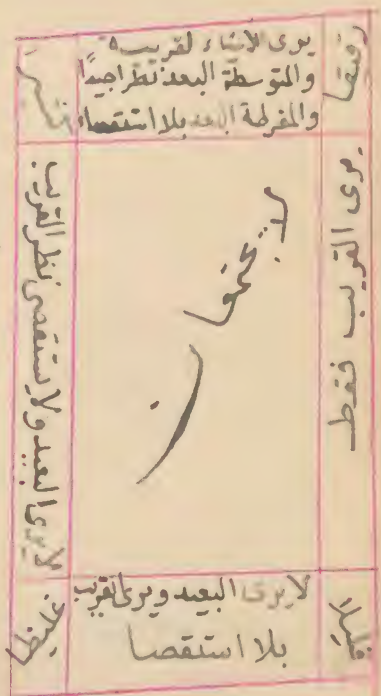 رقيقا
يرى الاشياء القريبة
والمتوسطة البعد نظرا جيدا
والمفرطة البعد بلا استقصاء
كثيرا
يرى القريب فقط
لا يجتمعان
لا يرى البعيد ولا يستقصى نظر القريب
قليلا
لا يرى البعيد ويرى القريب
بلا استقصا
غليظا